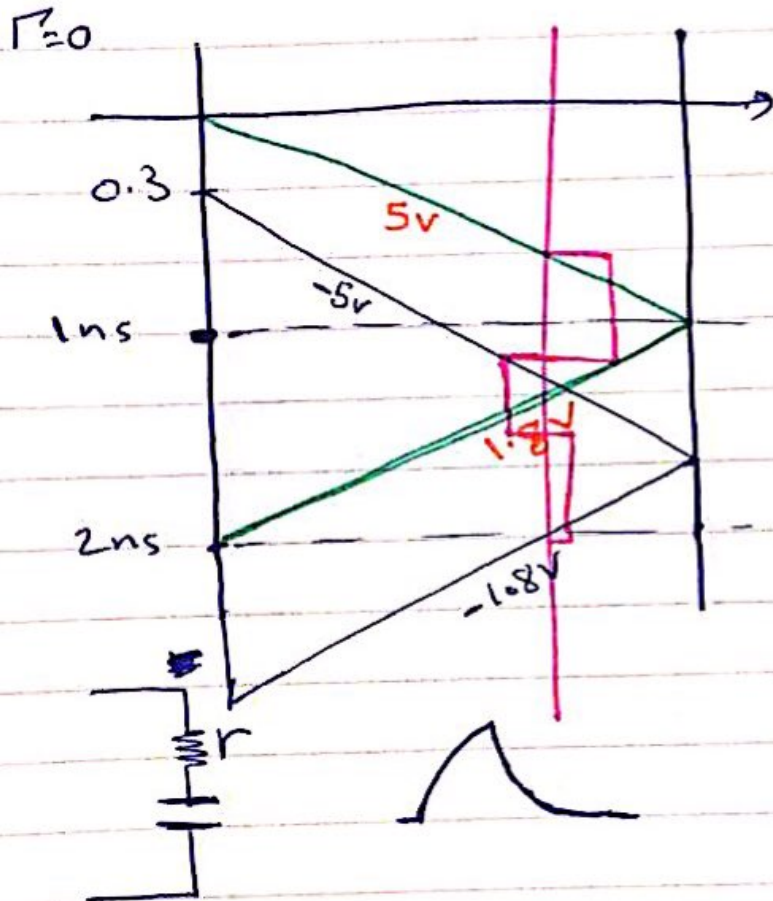 Γ=0
0.3
5v
-5v
1ns
1.8V
2ns
-1.8V
r